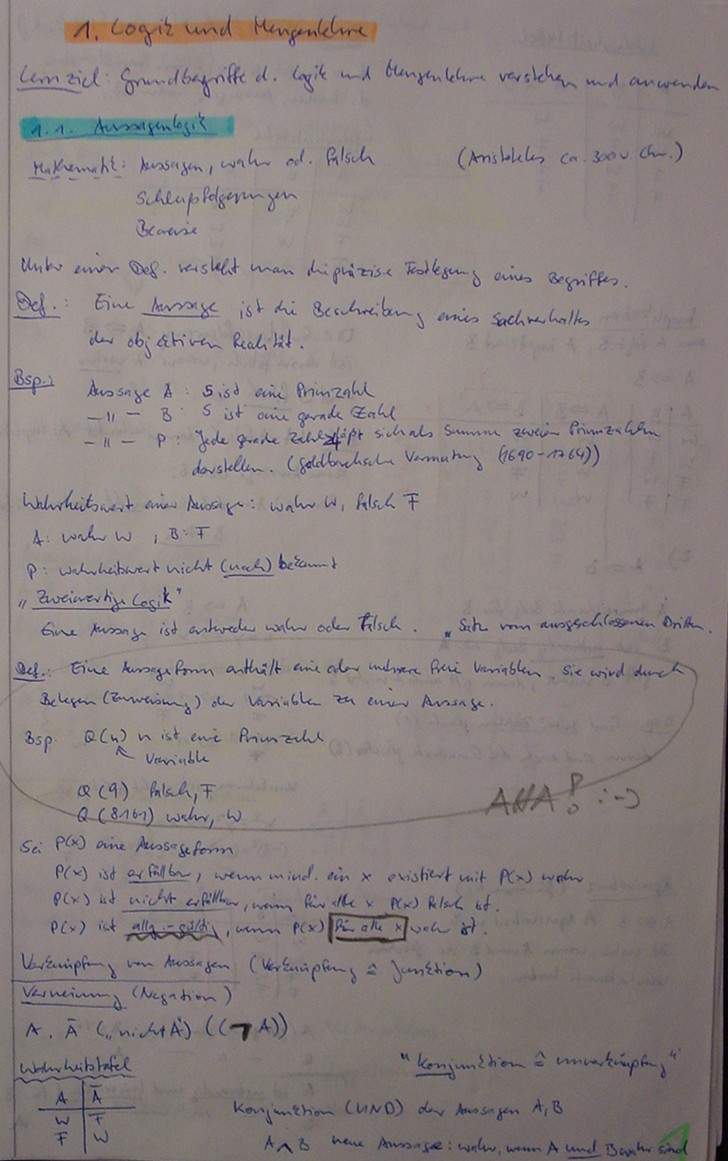 1. Logik und Mengenlehre
Lernziel: Grundbegriffe d. Logik und Mengenlehre verstehen und anwenden
1.1. Aussagenlogik
Mathematik: Aussagen, wahr od. falsch (Aristoteles ca. 300 v. Chr.)
Schlußfolgerungen
Beweise
Unter einer Def. versteht man die präzise Festlegung eines Begriffes.
Def.: Eine Aussage ist die Beschreibung eines Sachverhaltes
der objektiven Realität.
Bsp.: Aussage A: 5 ist eine Primzahl
—"— B: 5 ist eine gerade Zahl
—"— P: Jede gerade Zahl läßt sich als Summe zweier Primzahlen
darstellen. (Goldbachsche Vermutung (1690-1764))
Wahrheitswert einer Aussage: wahr W, falsch F
A: wahr W, B: F
P: Wahrheitswert nicht (noch) bekannt
"Zweiwertige Logik"
Eine Aussage ist entweder wahr oder falsch. "Satz vom ausgeschlossenen Dritten.
Def.: Eine Aussageform enthält eine oder mehrere freie Variablen. Sie wird durch
Belegen (Zuweisung) der Variablen zu einer Aussage.
Bsp. Q(n) n ist eine Primzahl
Variable
Q(9) falsch, F
Q(8161) wahr, W
ANA! :-)
Sei P(x) eine Aussageform
P(x) ist erfüllbar, wenn mind. ein x existiert mit P(x) wahr
P(x) ist nicht erfüllbar, wenn für alle x P(x) falsch ist.
P(x) ist allg.-gültig, wenn P(x) für alle x wahr ist.
Verknüpfung von Aussagen (Verknüpfung ≙ Junktion)
Verneinung (Negation)
A, Ā ("nicht A") ((¬A))
Wahrheitstafel "Konjunktion ≙ undverknüpfung"
A Ā
W F
F W
Konjunktion (UND) der Aussagen A, B
A ∧ B neue Aussage: wahr, wenn A und B wahr sind